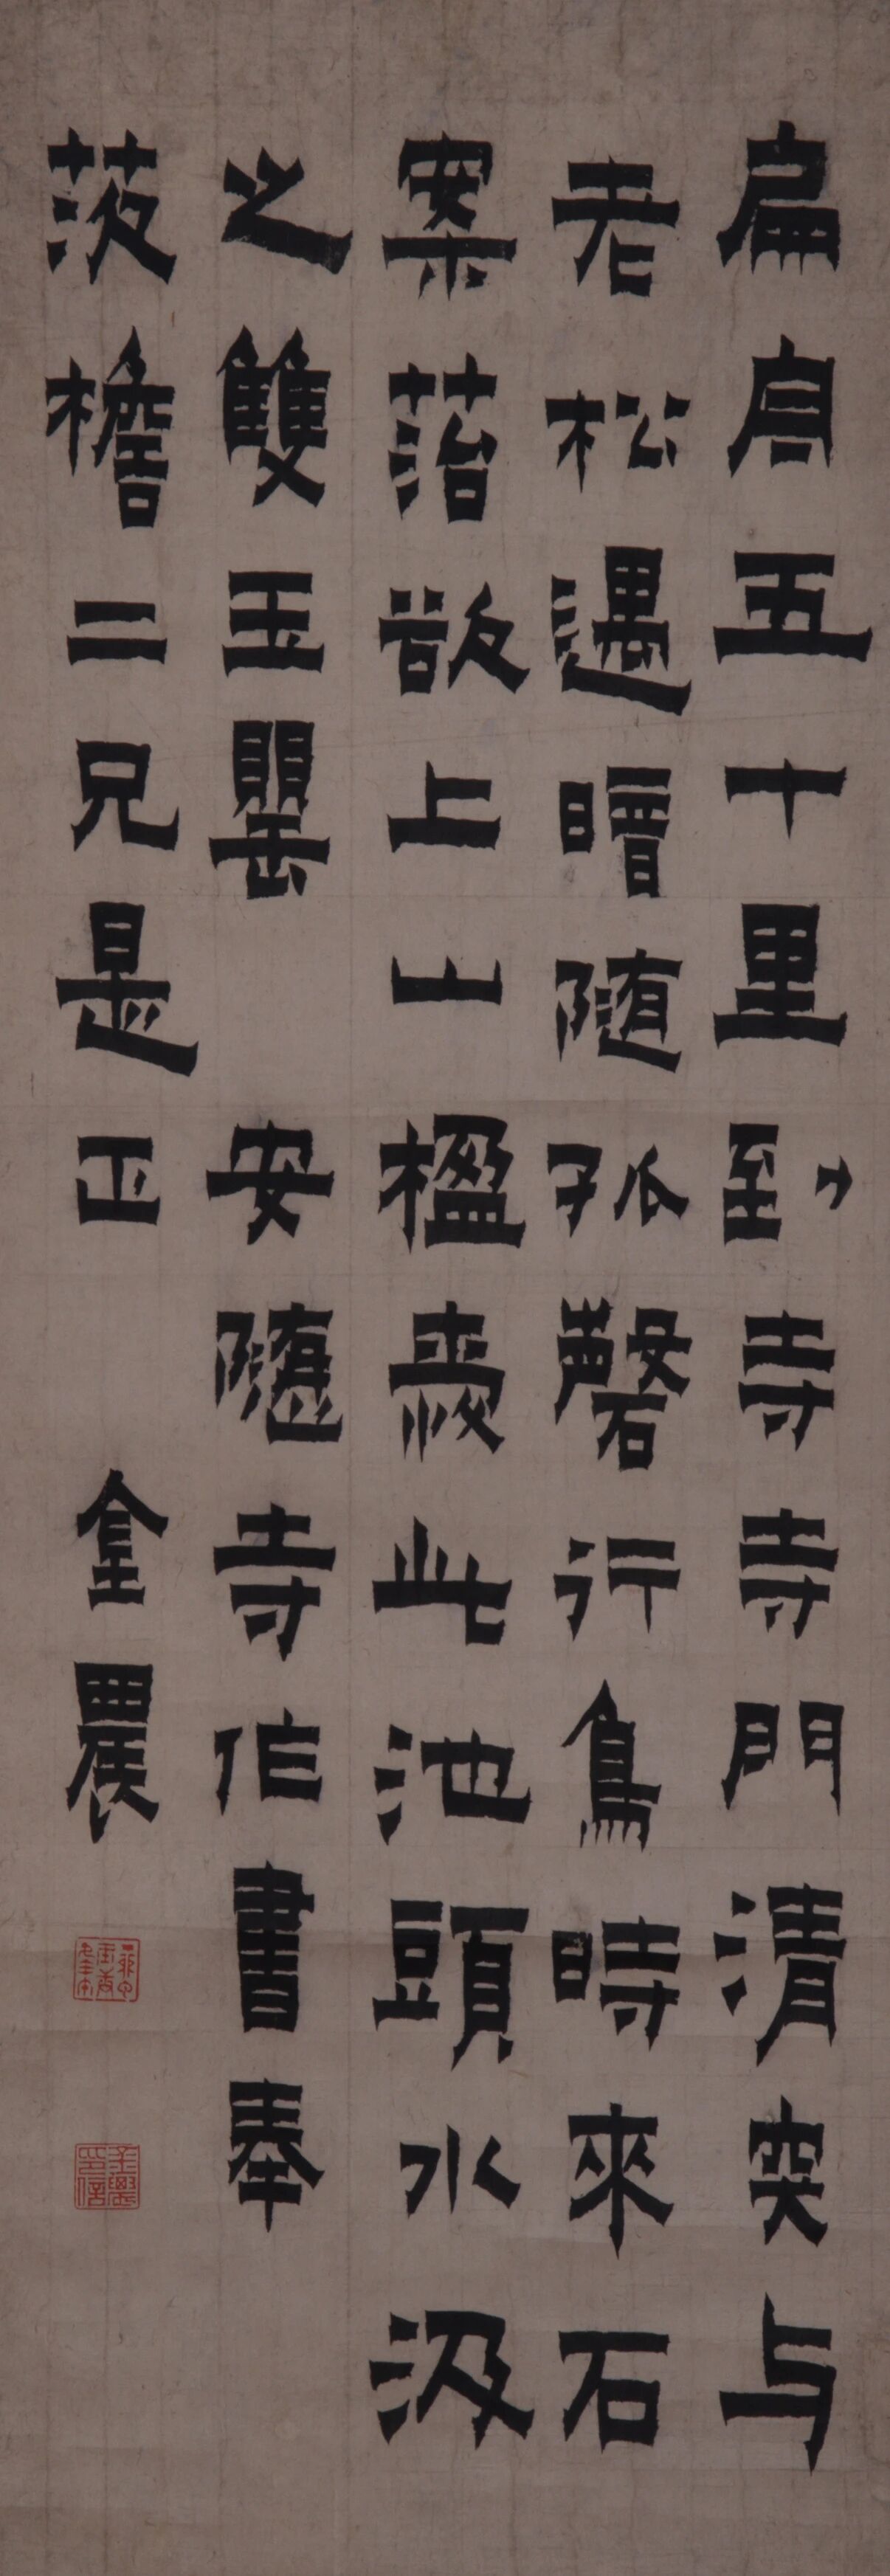 扁舟五十里到寺寺門清突与
老松遇随孤磬行鳥時來石
案苔欲上山楹羨此池頭水汲
之雙玉罌 安隱寺作書奉
茨檐二兄是正 金農
金農印信